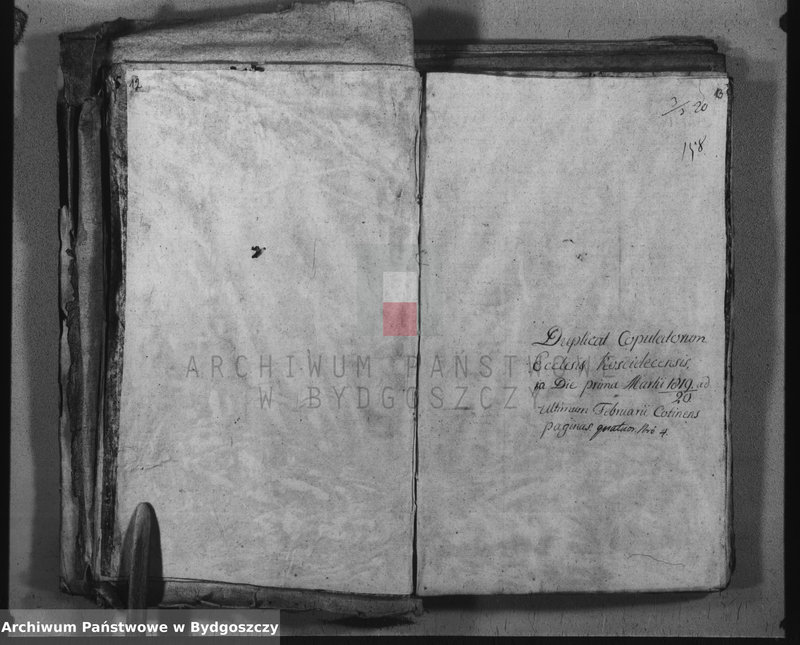 12
13
3/5 20
158
Duplicat Copulatorum
Ecclesis Koscielecensis,
a Die prima Martii 1819 ad
20
ultimum Februarii Cotinens
paginas quatuor Nro 4.
ARCHIWUM PAŃSTWOWE
W BYDGOSZCZY
Archiwum Państwowe w Bydgoszczy